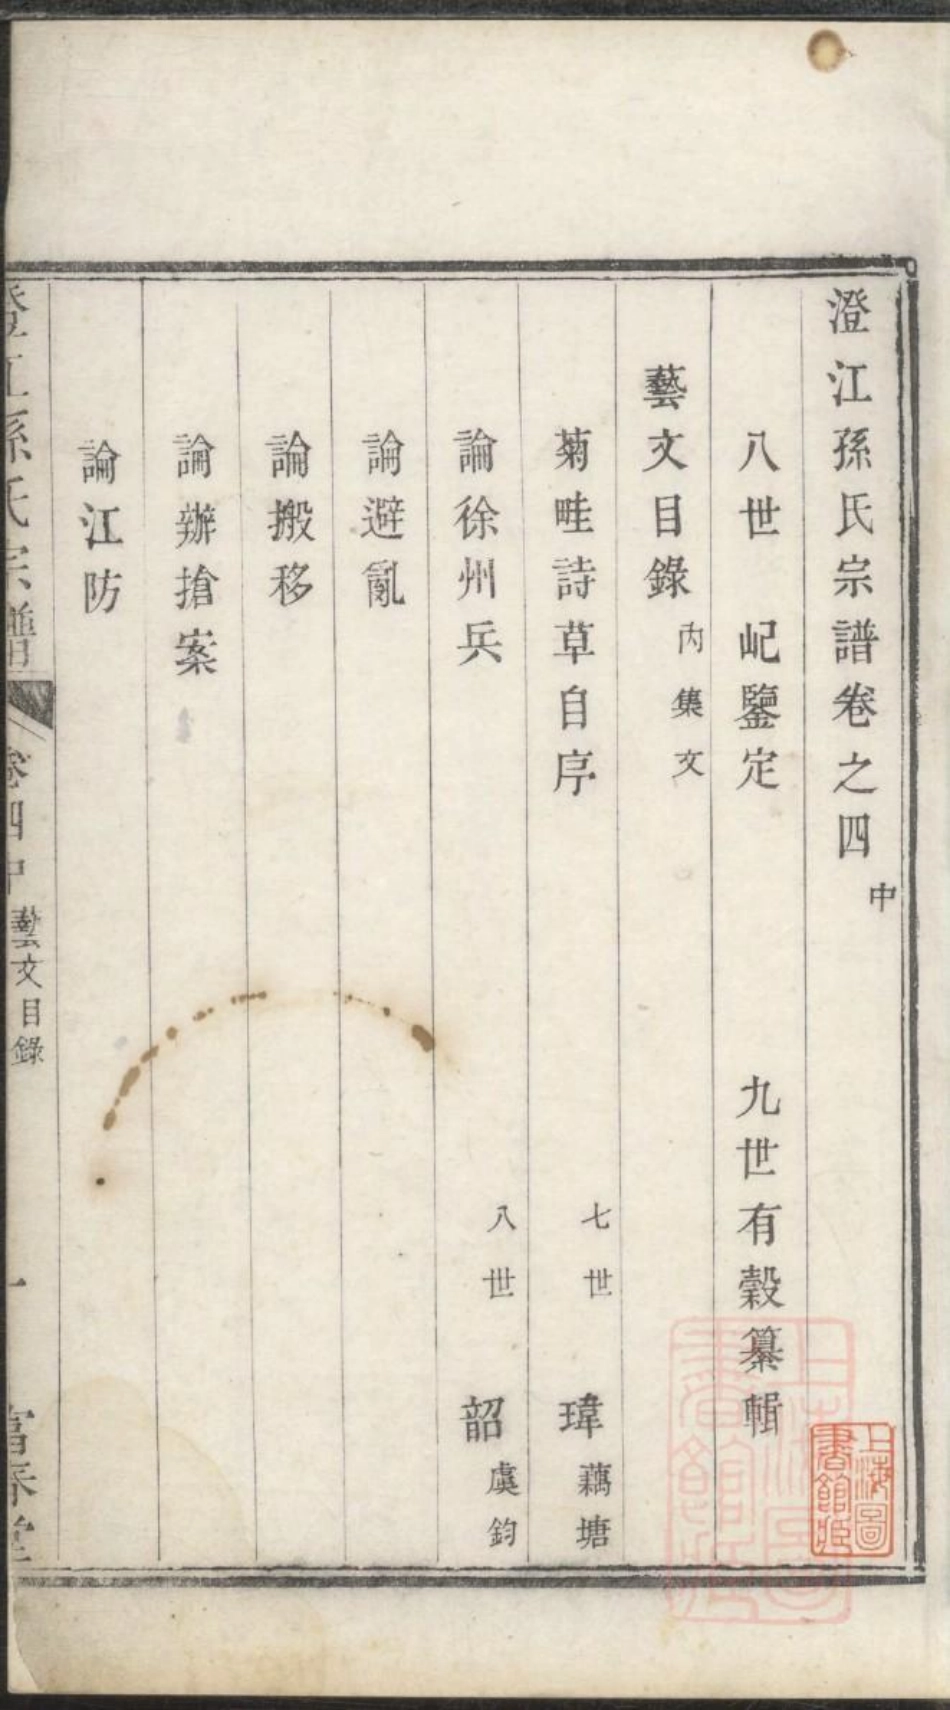 澄江孫氏宗譜卷之四中
八世 屺鑒定 九世有穀纂輯
藝文目錄 內集文
菊畦詩草自序 七世 瑋 藕塘
論徐州兵 八世 韶 虞鈞
論避亂
論搬移
論辦搶案
論江防
澄江孫氏宗譜 卷四中 藝文目錄 一 富春堂
上海圖書館藏